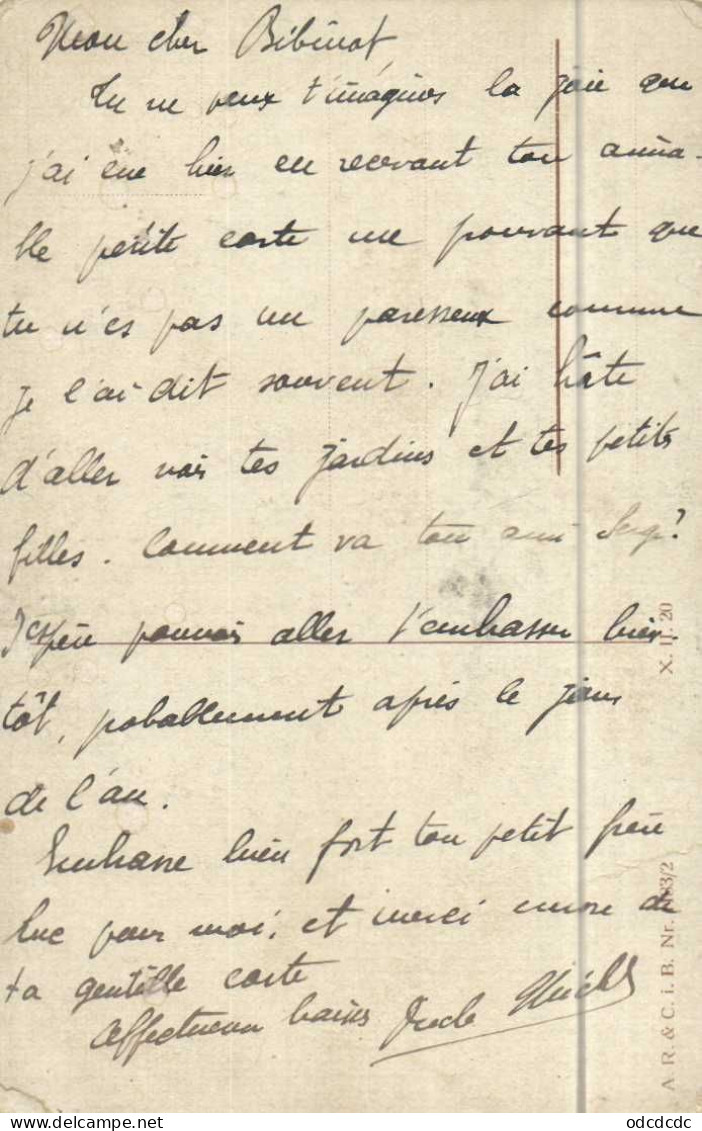 Mon cher Bibinot
Tu ne peux t'imaginer la joie que
j'ai eue hier en recevant ton aima-
ble petite carte me prouvant que
tu n'es pas un paresseux comme
je l'ai dit souvent. J'ai hâte
d'aller voir tes jardins et tes petites
filles. Comment va ton ami Serge?
J'espère pouvoir aller t'embrasser bien-
tôt, probablement après le jour
de l'an.
Embrasse bien fort ton petit frère
Luc pour moi, et merci encore de
ta gentille carte
Affectueux baisers Oncle
X. 11. 20
A R. & C. i. B. Nr.
odcdcdc